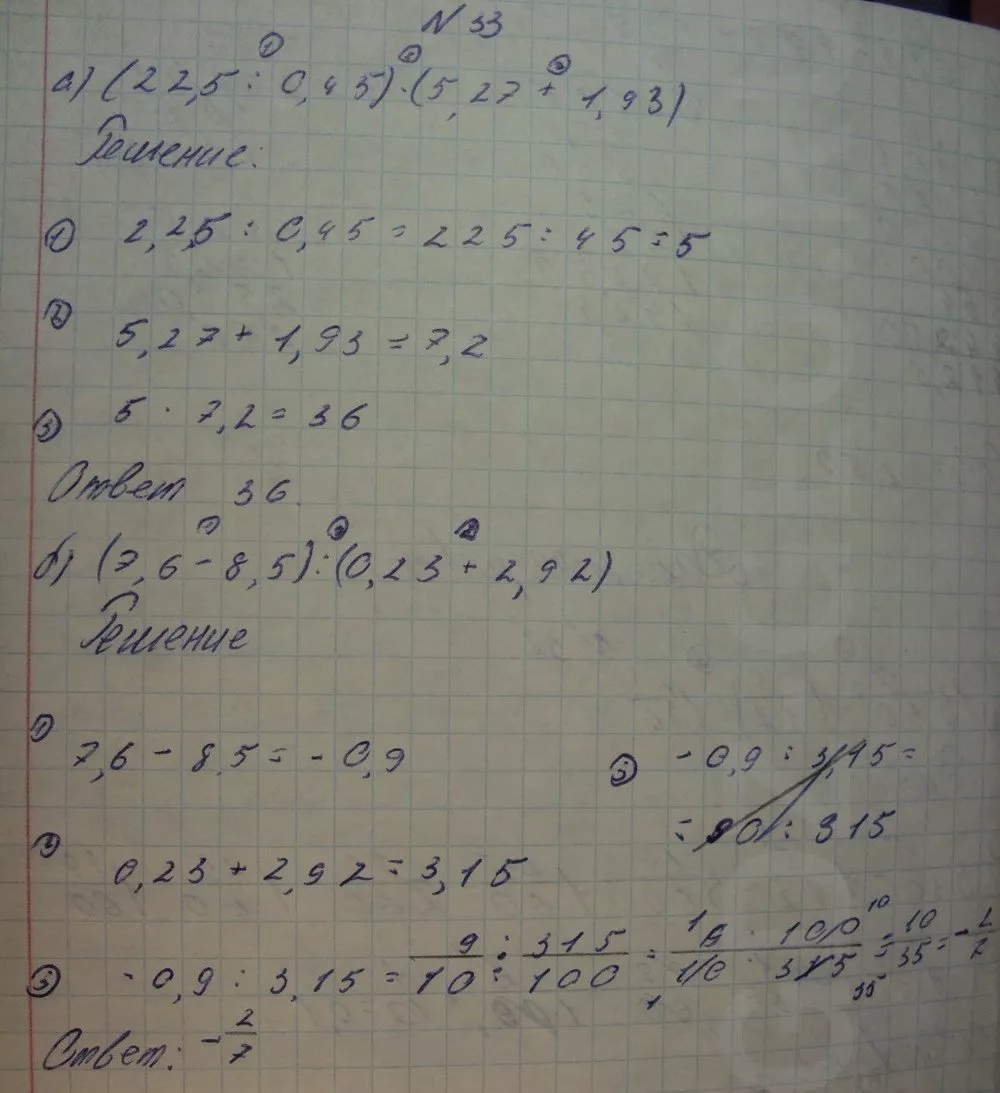 N 33
а) (22,5 : 0,45) · (5,27 + 1,93)
Решение:
① 2,2,5 : 0,45 = 225 : 45 = 5
② 5,27 + 1,93 = 7,2
③ 5 · 7,2 = 36
Ответ 36.
б) (7,6 - 8,5) : (0,23 + 2,92)
Решение
① 7,6 - 8,5 = - 0,9
③ - 0,9 : 3,15 =
= 90 : 315
② 0,23 + 2,92 = 3,15
③ - 0,9 : 3,15 = 9/10 : 315/100 = 9 · 100/10 · 315 = 10/35 = - 2/2
Ответ: - 2/7